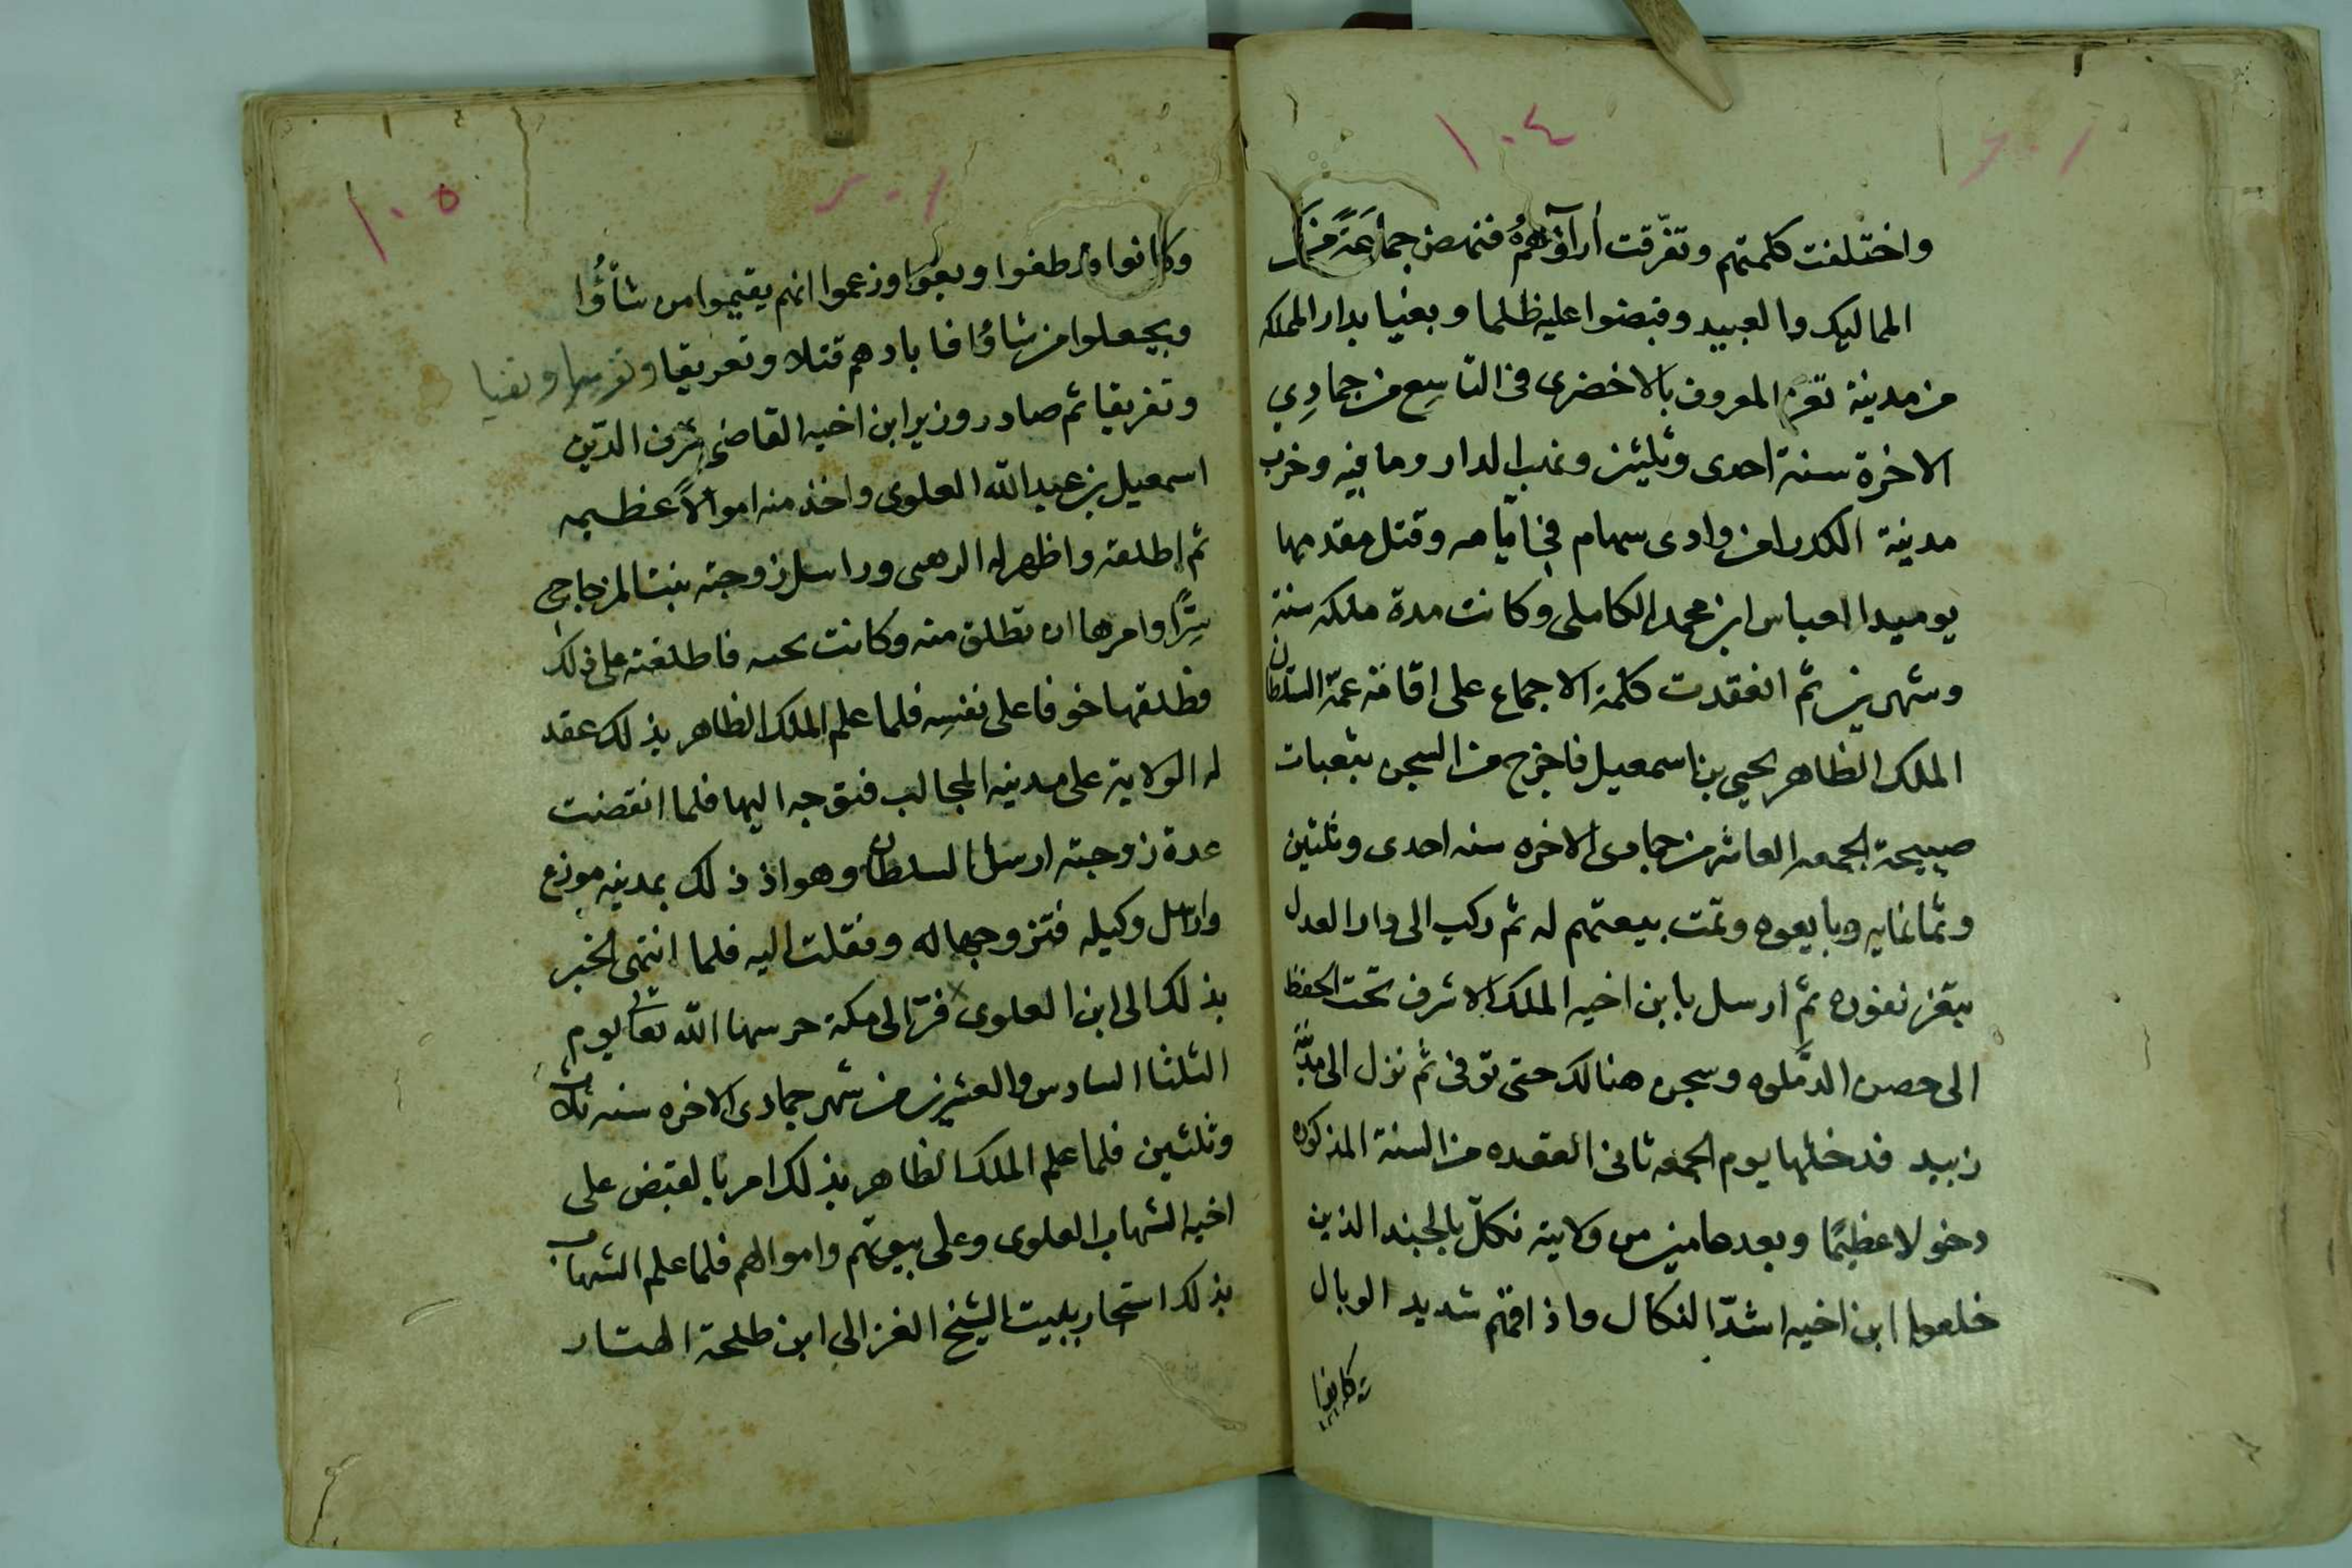 ١٠٤
واختلفت كلمتهم وتفرّقت أرآؤهمُ فنهض جماعَةً من
المماليك والعبيد وقبضوا عليه ظلما وبغيا بدار المملكه
من مدينة تعز المعروف بالاخضرى فى التاسِع من جمادِي
الاخرة سنة احدى وثلثين ونهب الدار وما فيه وخرب
مدينة الكدرا من وادى سهام فى ايّامه وقتل مقدمها
يوميدا العباس ابن محمد الكاملى وكانت مدة ملكه سنة
وشهرين ثم انعقدت كلمة الاجماع على اقامة عمّه السلطان
الملك الظاهر يحيى بن اسمعيل فاخرج من السجن بثعبات
صبيحة الجمعه العاشر من جمادى الاخره سنه احدى وثلثين
وثمانمايه وبايعوه وتمت بيعتهم له ثم ركب الى دار العدل
بتعز نفوره ثم ارسل بابن اخيه الملك الاشرف تحت الحفظ
الى حصن الدّملوه وسجن هنالك حتى توفى ثم نزل الى مدينة
زبيد فدخلها يوم الجمعه ثانى القعده من السنة المذكوره
دخولا عظيمًا وبعد عامين من ولايته نكلّ بالجند الذين
خلعوا ابن اخيه اشدّ النكال واذاقهم شديد الوبال
وكانوا
١٠٥
وكانوا قد طغوا وبغوا وزعموا انهم يقيموا من شآؤُا
ويجعلوا من شاؤا فابادهم قتلا وتغريقا وتغريبا ونفيا
وتفريقا ثم صادر وزير ابن اخيه القاضى شرف الدّين
اسمعيل بن عبد الله العلوى واخذ منه اموالاً عظيمه
ثم اطلقه واظهر له الرضى وراسل زوجته بنت المزجاجى
سِرًّا وامرها ان تطلق منه وكانت تحبه فاطلعته على ذلك
فطلقها خوفا على نفسِه فلما علم الملك الظاهر بذلك عقد
له الولاية على مدينه المحالب فتوجه اليها فلما انقضت
عدة زوجته ارسل السلطان وهو اذ ذلك بمدينه موزع
وارسل وكيله فتزوجها له ونقلت اليه فلما انتهى الخبر
بذلك الى ابن العلوى فرّ الى مكة حرسها الله تعالى يوم
الثلثا السادس والعشرين من شهر جمادى الاخره سنه ثلاث
وثلثين فلما علم الملك الظاهر بذلك امر بالقبض على
اخيه الشهاب العلوى وعلى بيوتهم واموالهم فلما علم الشهاب
بذلك استجار ببيت الشيخ الغزالى ابن طلحة الهتار